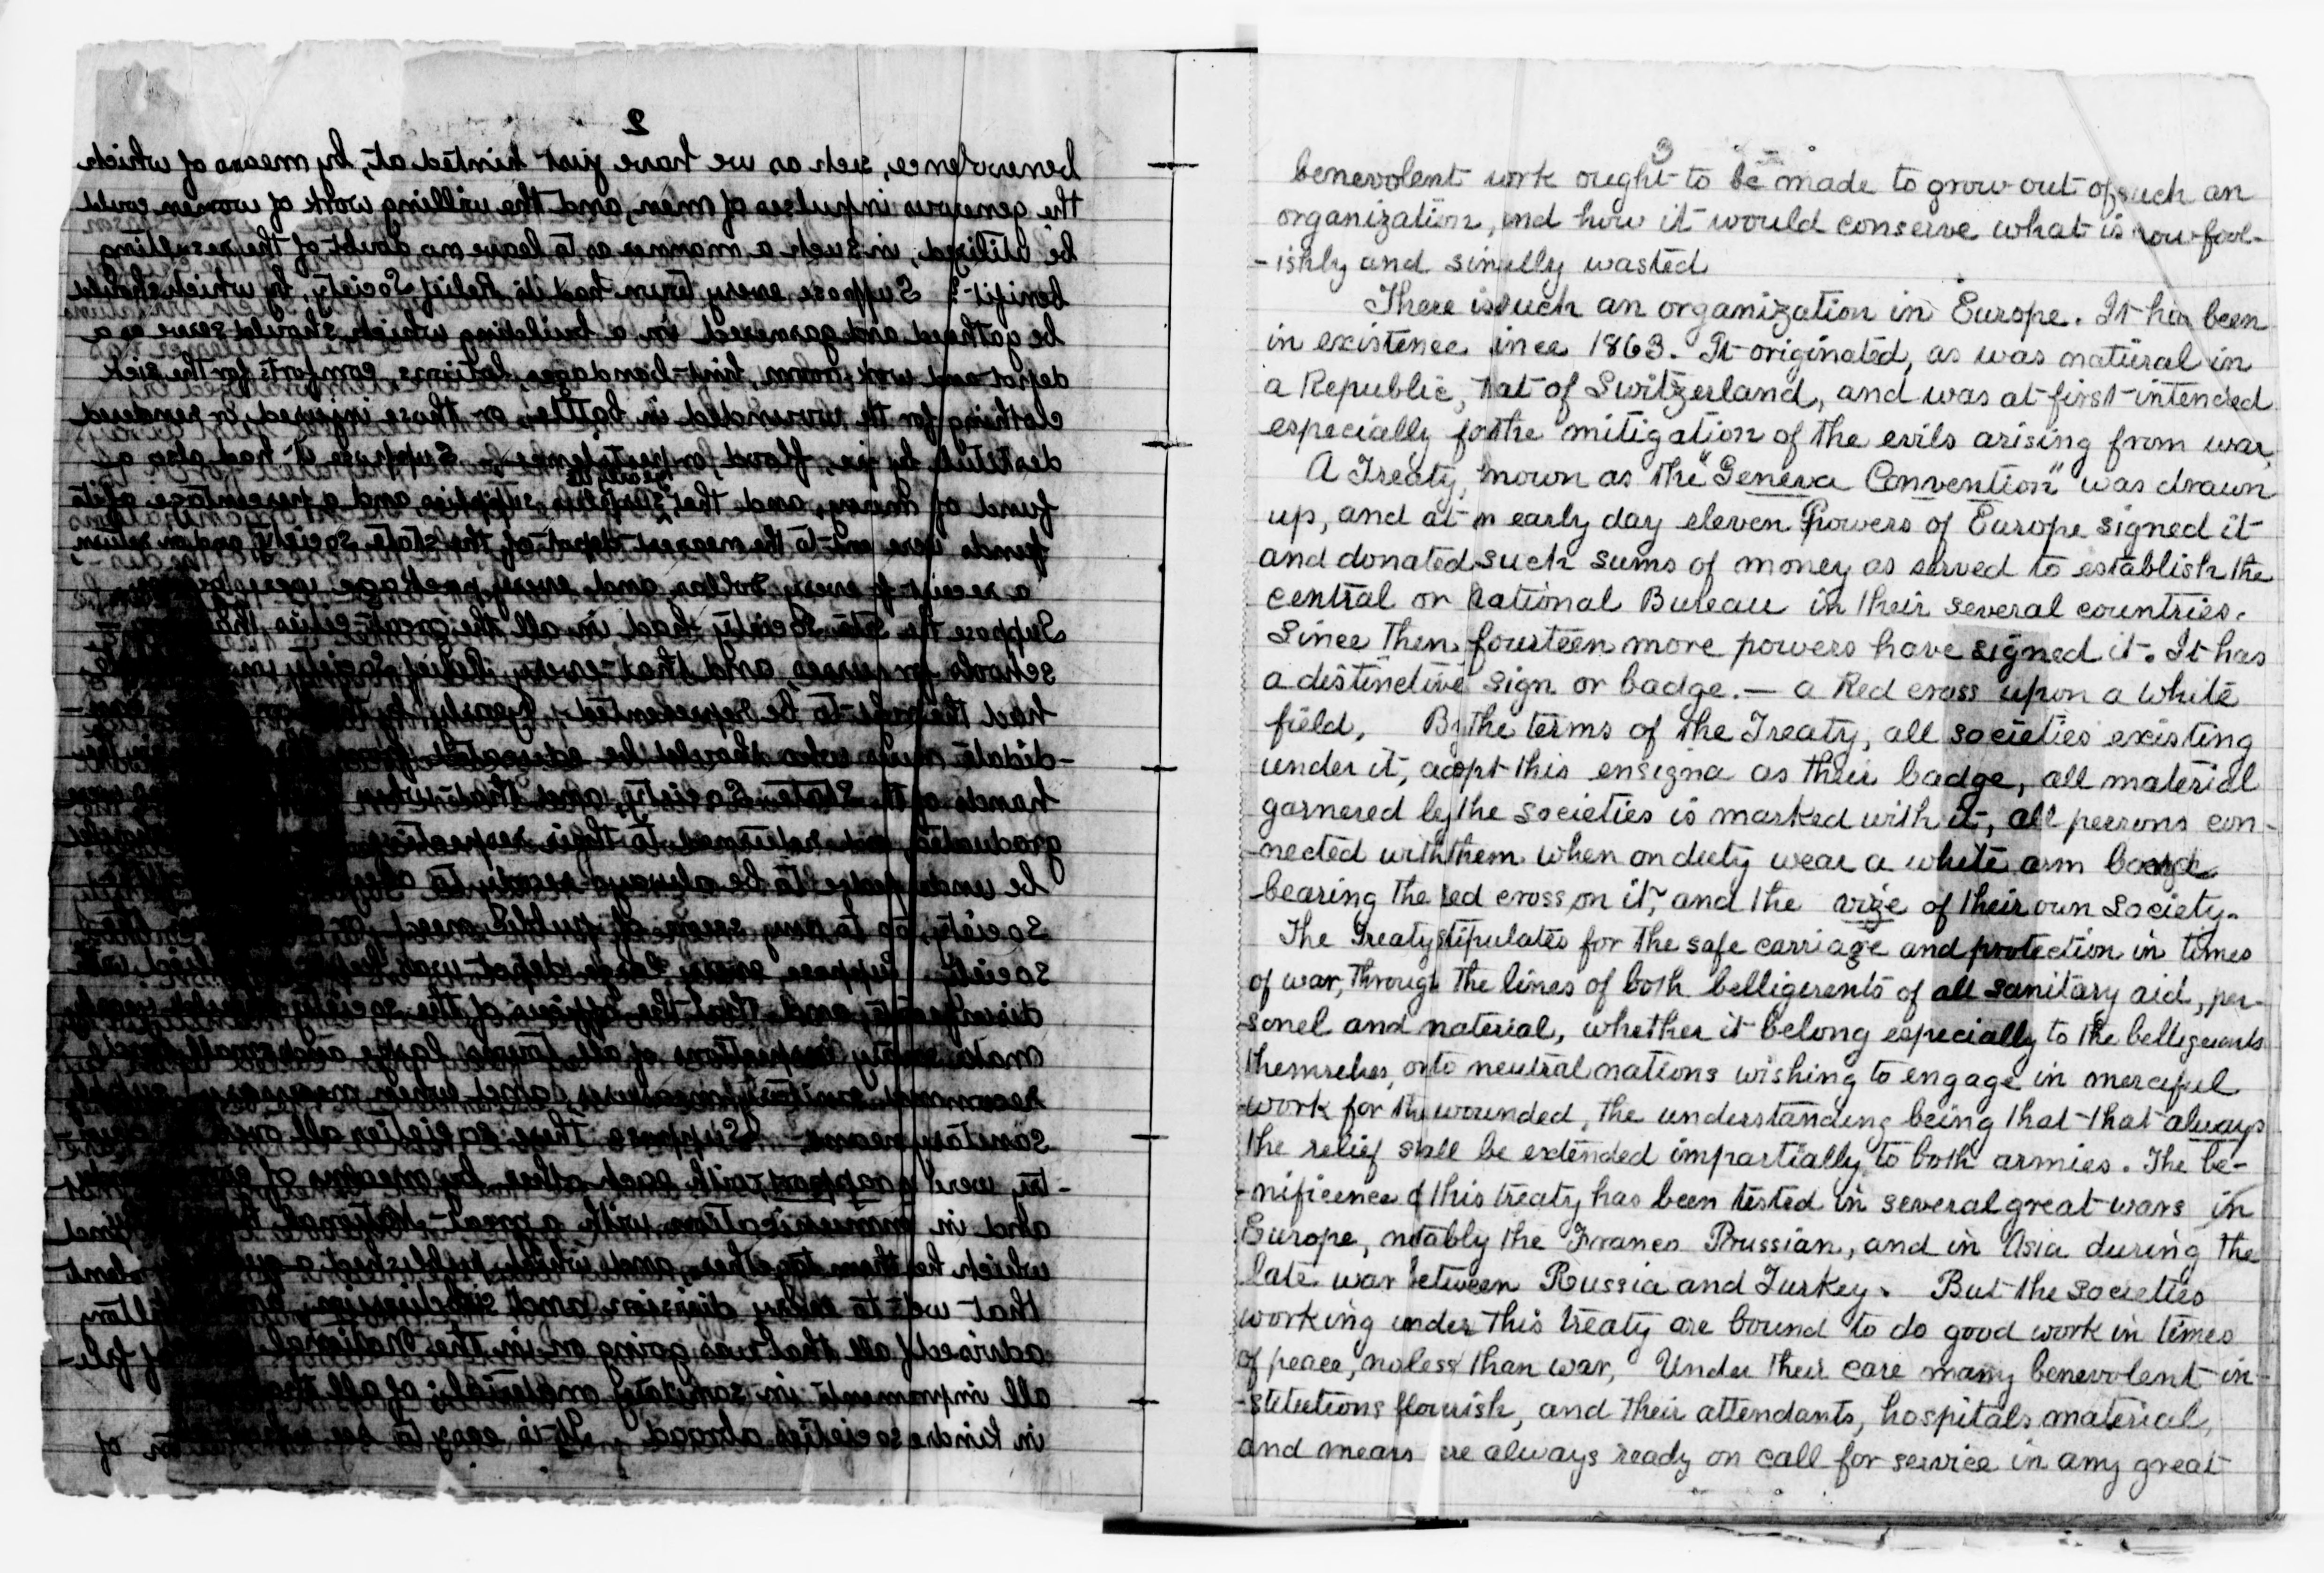 2
benevolence, such as we have just hinted at, by means of which
the generous impulses of men, and the willing work of women could
be utilized, in such a manner as to leave no doubt of the resulting
benifit? Suppose every town had its Relief Society, by which should
be gathered and garnered in a building which should serve as a
depot and work room, lint-bandages, lotions, comforts for the sick
clothing for the wounded in battle, or those injured, or rendered
destitute by fire, flood, or pestilence. Suppose it had also a
fund of money, and that yearly its surplus supplies, and a percentage of its
funds were sent to the nearest depot of the State Society and in return
a receipt for every dollar and every package were
Suppose the State Society had in all the great cities,
schools for nurses, and that every Relief Society in
had the right to be represented, yearly by
-didate nurse who should be educated
hands of the State Society, and that when
graduated, and returned to their respective
be under pledge to be always ready to obey
society, or to any scene of public need
society. Suppose every large depot was
disinfectants, and that the officers of the society
make yearly inspections of all towns large and small
recommend sanitary measures, and when necessary supply
sanitary means. Suppose these societies all over
-try were in rapport with each other by means of
and in communication with a great National
which held them together, and which published a
that went to every division and subdivision,
advised of all that was going on in the National
all improvements in sanitary materials of all
in kindred societies abroad. It is easy to see
3
benevolent work ought to be made to grow out of such an
organization, and how it would conserve what is now fool-
-ishly and sinfully wasted
There is such an organization in Europe. It has been
in existence since 1863. It originated, as was natural in
a Republic, that of Switzerland, and was at first intended
especially for the mitigation of the evils arising from war.
A Treaty, known as the "Geneva Convention" was drawn
up, and at an early day eleven Powers of Europe signed it
and donated such sums of money as served to establish the
central or National Bureau in their several countries.
Since then fourteen more powers have signed it. It has
a distinctive sign or badge. — a Red cross upon a white
field. By the terms of the Treaty, all societies existing
under it, adopt this ensigna as their badge, all material
garnered by the societies is marked with it, all persons con-
-nected with them when on duty wear a white arm
bearing the red cross on it, and the vize of their own Society.
The Treaty stipulates for the safe carriage and protection in times
of war, through the lines of both belligerents of all sanitary aid, per-
sonel and material, whether it belong especially to the belligerents
themselves, or to neutral nations wishing to engage in merciful
work for the wounded, the understanding being that that always
the relief shall be extended impartially to both armies. The be-
-nificence of this treaty has been tested in several great wars in
Europe, notably the Franco Prussian, and in Asia during the
late war between Russia and Turkey. But the societies
working under this treaty are bound to do good work in times
of peace, no less than war. Under their care many benevolent in-
-stitutions flourish, and their attendants, hospitals material,
and means are always ready on call for service in any great